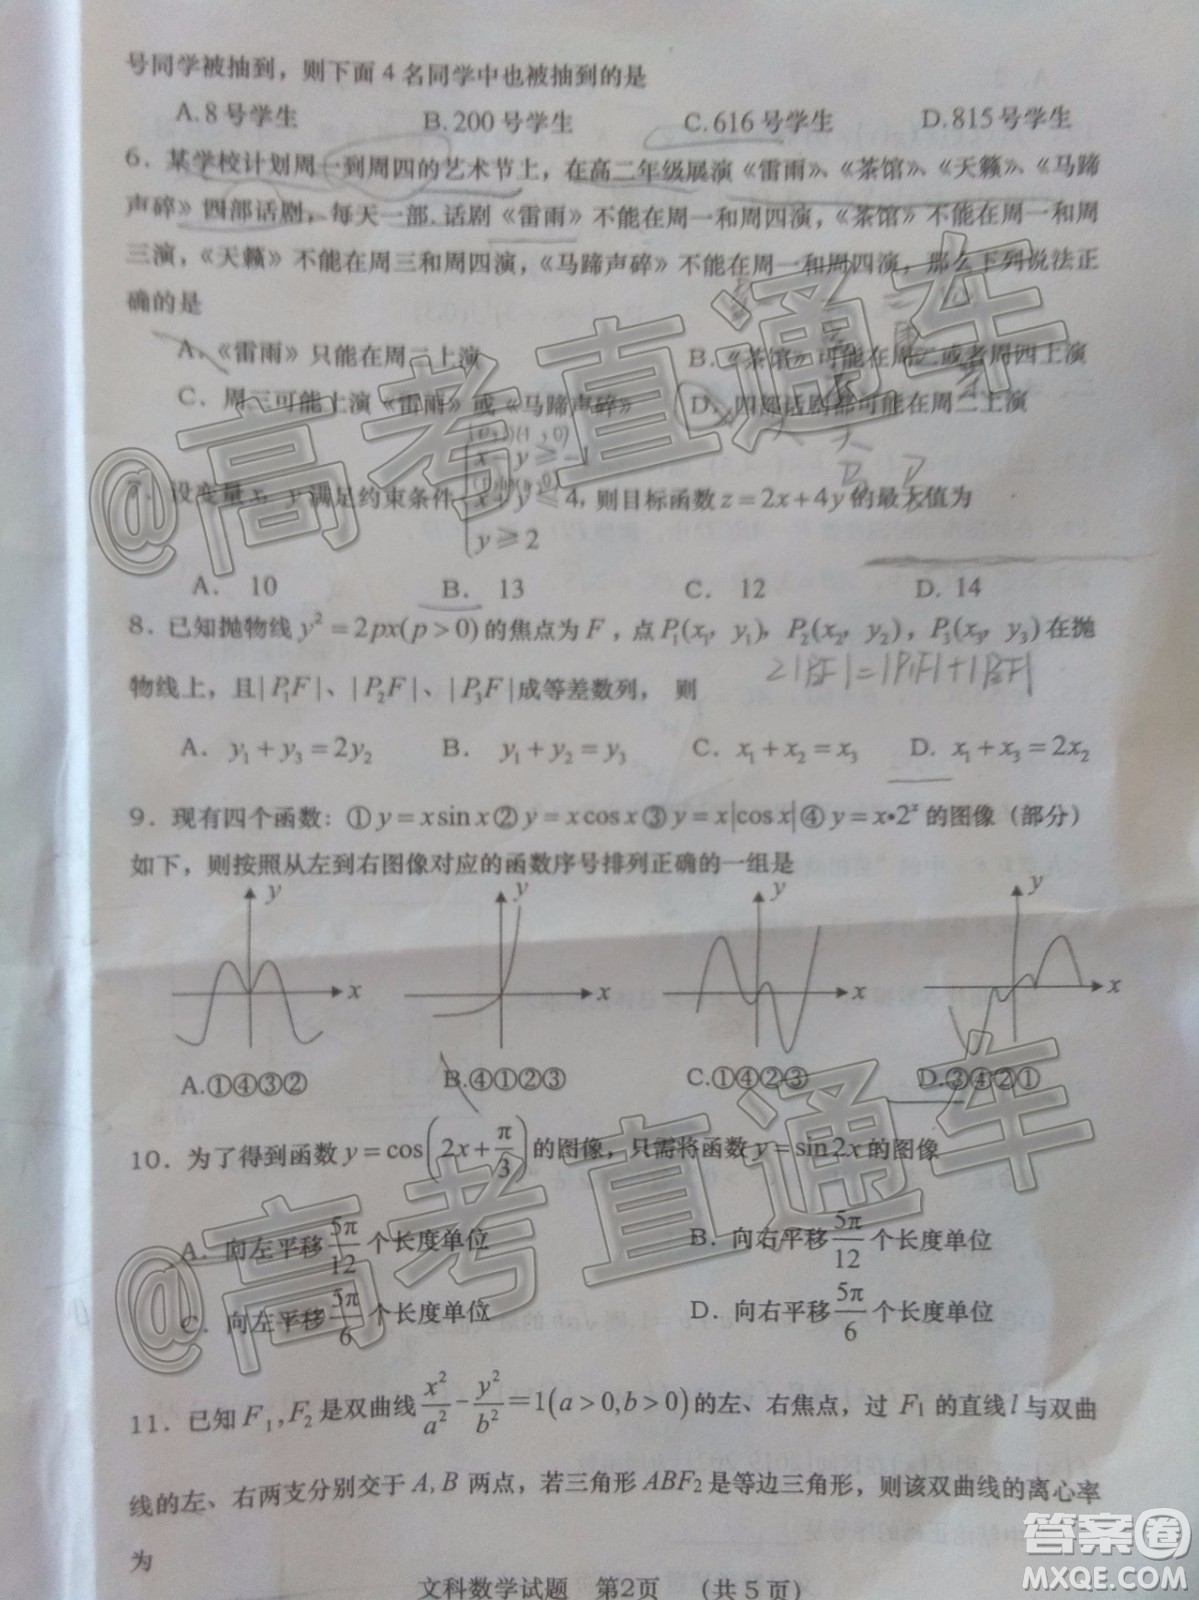 号同学被抽到，则下面4名同学中也被抽到的是
A.8号学生 B.200号学生 C.616号学生 D.815号学生
6．某学校计划周一到周四的艺术节上，在高二年级展演《雷雨》、《茶馆》、《天籁》、《马蹄
声碎》四部话剧，每天一部．话剧《雷雨》不能在周一和周四演，《茶馆》不能在周一和周
三演，《天籁》不能在周三和周四演，《马蹄声碎》不能在周一和周四演，那么下列说法正
确的是
A．《雷雨》只能在周二上演 B．《茶馆》可能在周二或者周四上演
C．周三可能上演《雷雨》或《马蹄声碎》 D．四部话剧都可能在周二上演
x－y≥－1
7．设变量x，y满足约束条件 x＋y≤4，则目标函数z＝2x＋4y的最大值为
y≥2
A． 10 B． 13 C． 12 D．14
8．已知抛物线y²＝2px(p＞0)的焦点为F，点P₁(x₁，y₁)，P₂(x₂，y₂)，P₃(x₃，y₃)在抛
2|P₂F|=|P₁F|+|P₃F|
物线上，且|P₁F|、|P₂F|、|P₃F|成等差数列， 则
A． y₁＋y₃＝2y₂ B． y₁＋y₂＝y₃ C．x₁＋x₂＝x₃ D．x₁＋x₃＝2x₂
9．现有四个函数：①y＝xsinx②y＝xcosx③y＝x|cosx|④y＝x•2ˣ的图像（部分）
如下，则按照从左到右图像对应的函数序号排列正确的一组是
y y y y
x x x x
A.①④③② B.④①②③ C.①④②③ D.③④②①
10．为了得到函数y＝cos(2x＋π/3)的图像，只需将函数y＝sin2x的图像
A．向左平移5π/12个长度单位 B．向右平移5π/12个长度单位
C．向左平移5π/6个长度单位 D．向右平移5π/6个长度单位
11．已知F₁,F₂是双曲线x²/a²－y²/b²＝1(a＞0,b＞0)的左、右焦点，过F₁的直线l与双曲
线的左、右两支分别交于A,B两点，若三角形ABF₂是等边三角形，则该双曲线的离心率
为
文科数学试题 第2页 （共5页）
@高考直通车
@高考直通车
答案圈
MXQE.COM